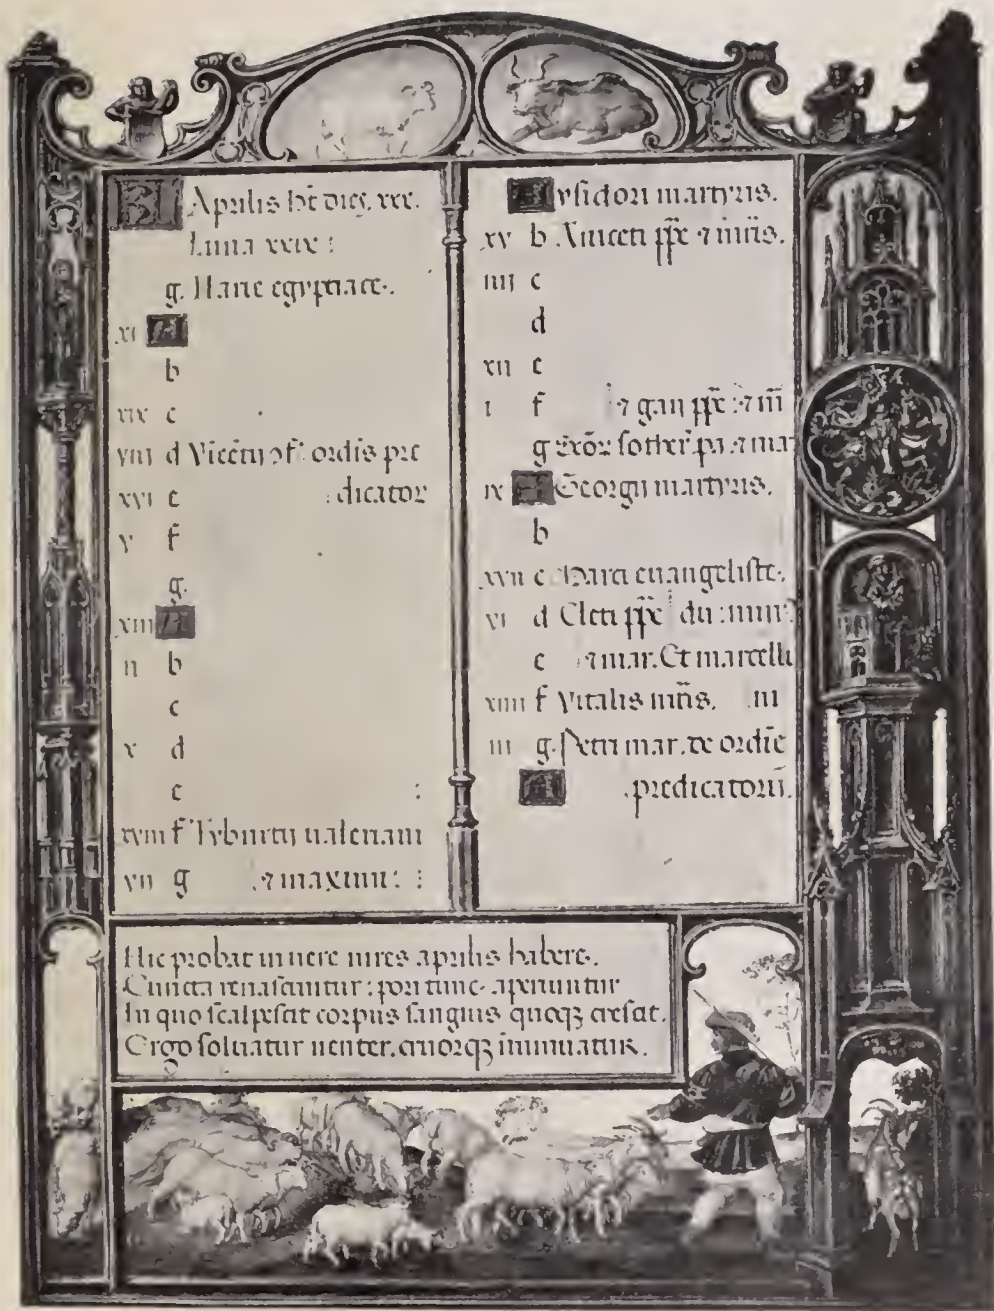 KL Aprilis h̄t dies. xxx.
Luna xxix :
g. Marie egyptiace.
xi A
b
xix c
viii d Vicētij ɔf ordīs pre
xvi e dicator
v f
g.
xiii A
ii b
c
x d
e :
xviii f Tyburtij ualeriani
vii g ⁊ maximi : :
A ysidori martyris.
xv b Aniceti pp̄e ⁊ mr̄is.
iiii c
d
xii e
i f ⁊ gaij pp̄e ⁊ m̄
g
ix A Georgij martyris.
b
xvii c Marci euangeliste.
vi d Cleti pp̄e
e ⁊ mar. Et marcelli
xiiii f Vitalis mr̄is.
iii g. Petri mar. de ordīe
A predicatorū.
Hic probat in uere uires aprilis habere.
Cuncta renascuntur : pori tunc aperiuntur
In quo scalpescit corpus sanguis quoqꝫ crescit.
Ergo soluatur uenter. cruorqꝫ īminuatur.